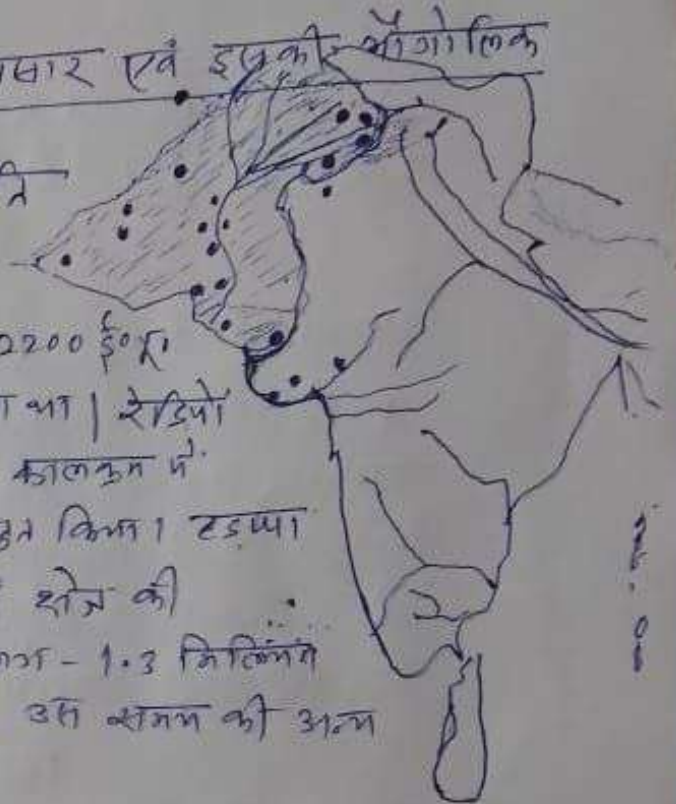 प्रसार एवं इसकी भौगोलिक
ति
2200 ई०पू०
था | रेडियो
कालक्रम में
किया। हडप्पा
क्षेत्र की
- 1.3 मिलियन
उस समय की अन्य